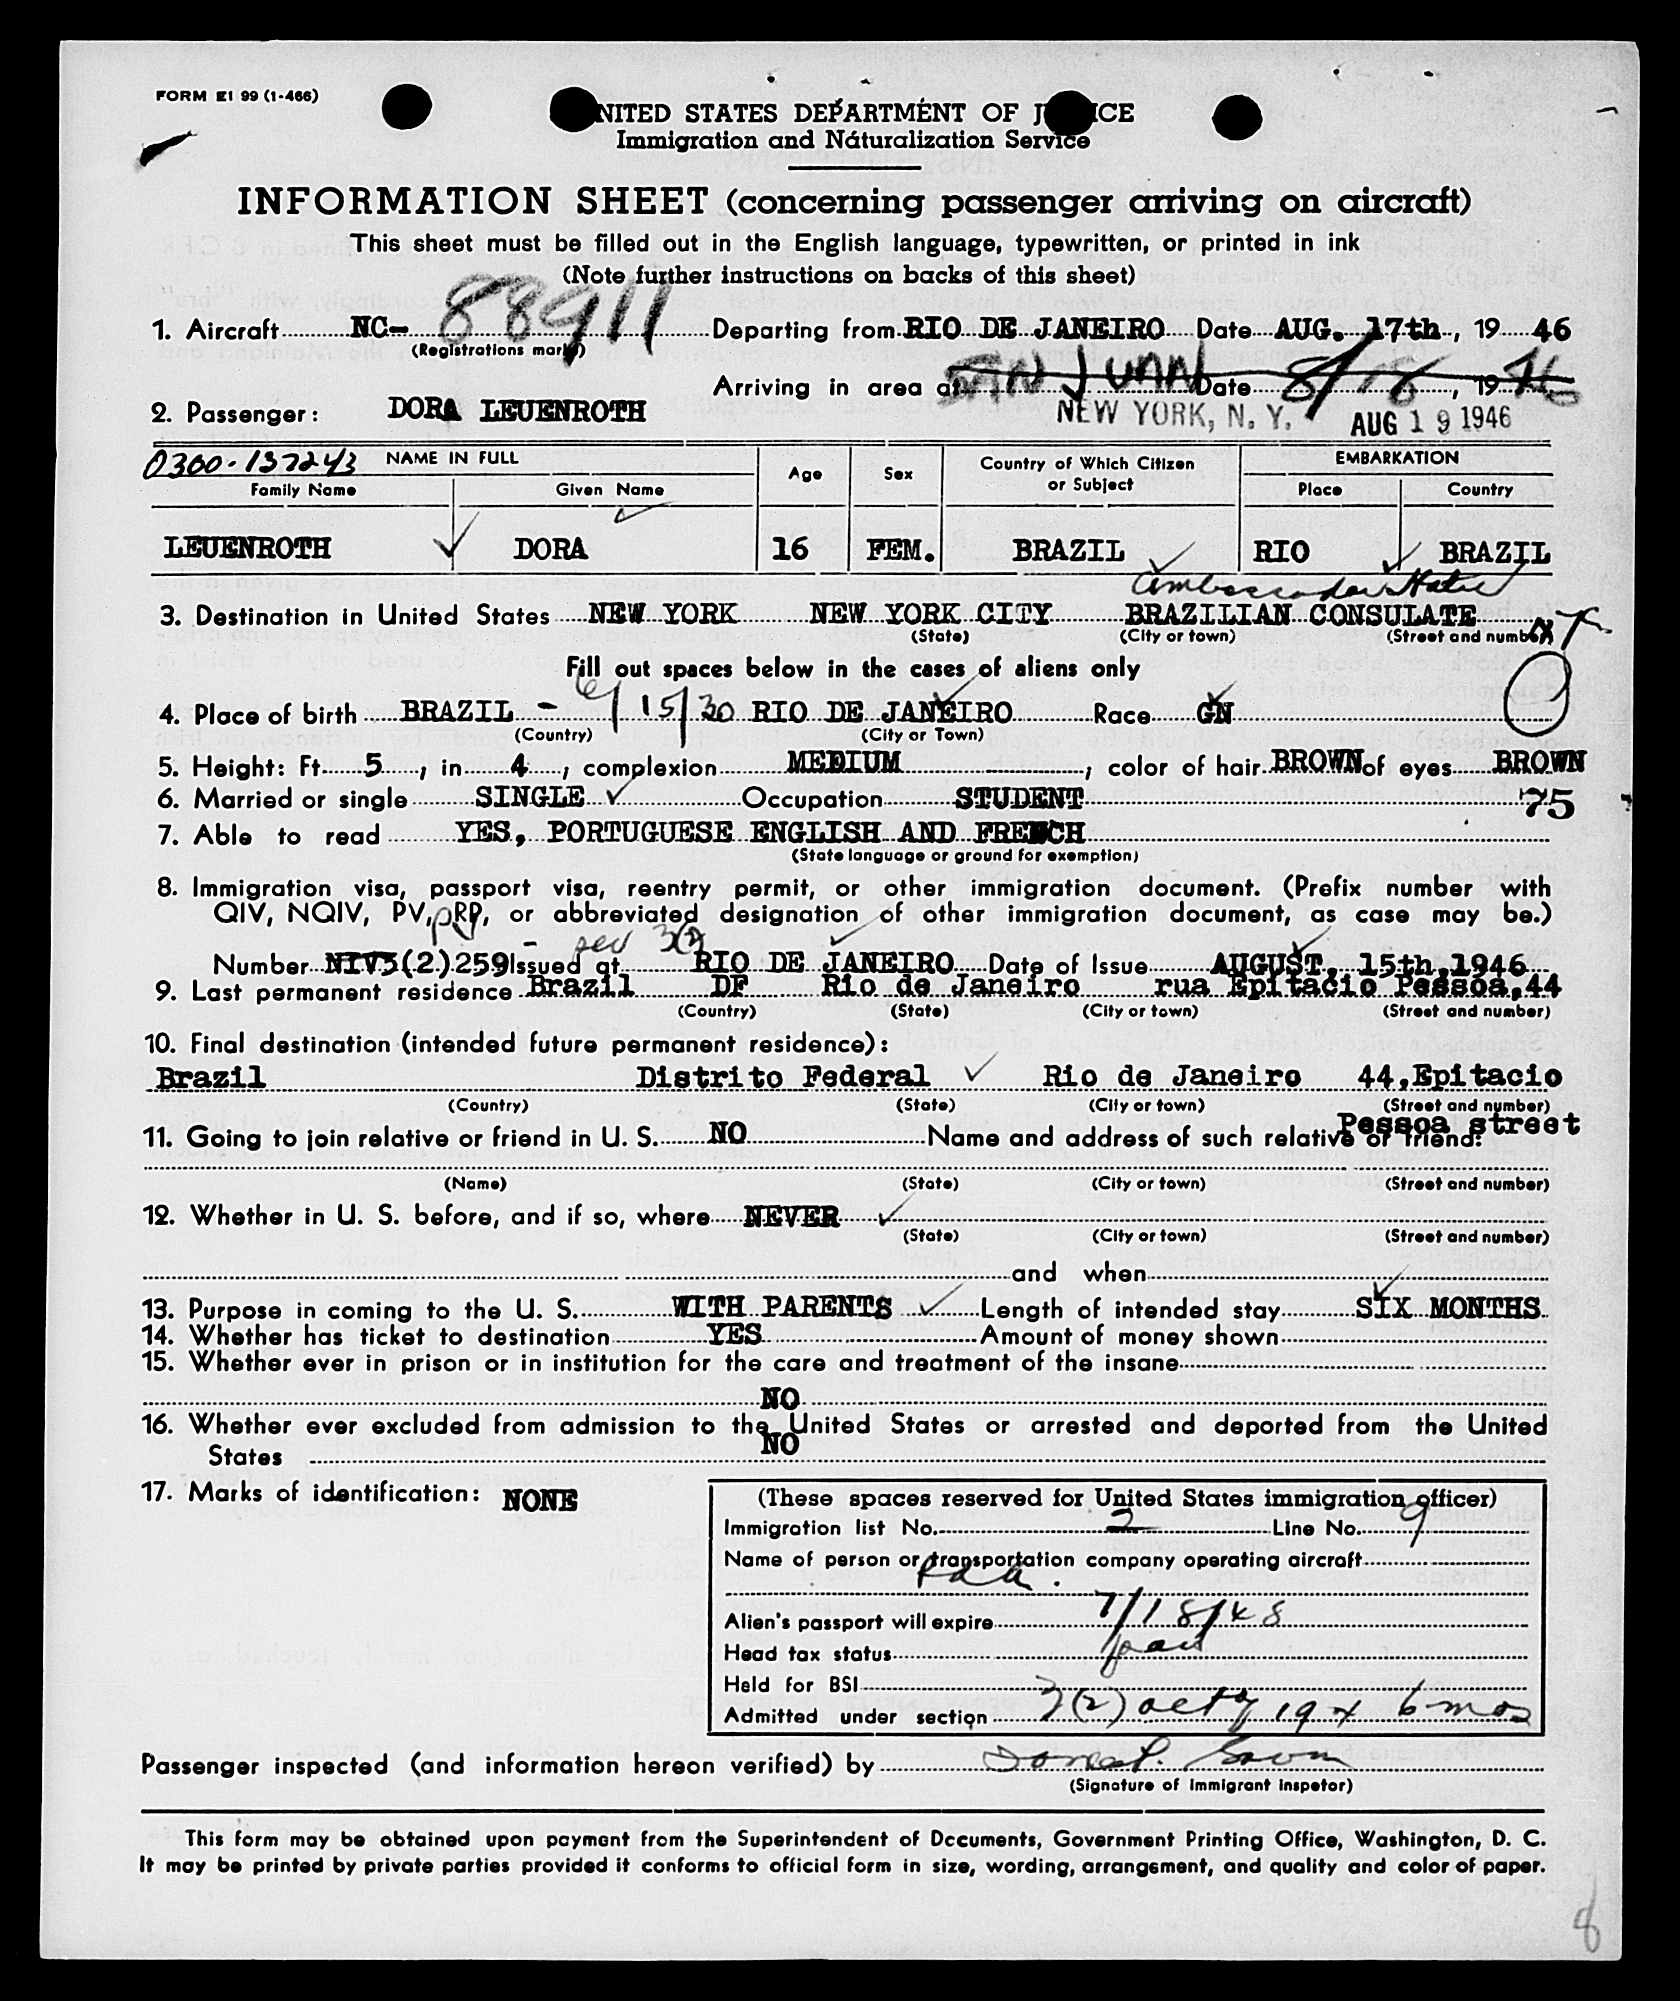 FORM EI 99 (1-466)
UNITED STATES DEPARTMENT OF JUSTICE
Immigration and Naturalization Service
INFORMATION SHEET (concerning passenger arriving on aircraft)
This sheet must be filled out in the English language, typewritten, or printed in ink
(Note further instructions on backs of this sheet)
1. Aircraft NC- 88911 Departing from RIO DE JANEIRO Date AUG. 17th, 19 46
(Registrations marks)
Arriving in area at SAN JUAN Date 8/18, 19 46
2. Passenger: DORA LEUENROTH NEW YORK, N. Y. AUG 19 1946
0300-137243 NAME IN FULL Age Sex Country of Which Citizen or Subject EMBARKATION
Family Name Given Name Place Country
LEUENROTH DORA 16 FEM. BRAZIL RIO BRAZIL
Ambassador Hotel
3. Destination in United States NEW YORK NEW YORK CITY BRAZILIAN CONSULATE
(State) (City or town) (Street and number)
Fill out spaces below in the cases of aliens only
4. Place of birth BRAZIL - 6/15/30 RIO DE JANEIRO Race GN
(Country) (City or Town)
5. Height: Ft. 5, in. 4, complexion MEDIUM, color of hair BROWN of eyes BROWN
6. Married or single SINGLE Occupation STUDENT 75
7. Able to read YES, PORTUGUESE ENGLISH AND FRENCH
(State language or ground for exemption)
8. Immigration visa, passport visa, reentry permit, or other immigration document. (Prefix number with
QIV, NQIV, PV, RP, or abbreviated designation of other immigration document, as case may be.)
sec 3(2)
Number NIV3(2)259 Issued at RIO DE JANEIRO Date of Issue AUGUST, 15th, 1946
9. Last permanent residence Brazil DF Rio de Janeiro rua Epitacio Pessoa, 44
(Country) (State) (City or town) (Street and number)
10. Final destination (intended future permanent residence):
Brazil Distrito Federal Rio de Janeiro 44, Epitacio
(Country) (State) (City or town) (Street and number)
Pessoa street
11. Going to join relative or friend in U. S. NO Name and address of such relative or friend:
(Name) (State) (City or town) (Street and number)
12. Whether in U. S. before, and if so, where NEVER
(State) (City or town) (Street and number)
and when
13. Purpose in coming to the U. S. WITH PARENTS Length of intended stay SIX MONTHS
14. Whether has ticket to destination YES Amount of money shown
15. Whether ever in prison or in institution for the care and treatment of the insane
NO
16. Whether ever excluded from admission to the United States or arrested and deported from the United
States NO
17. Marks of identification: NONE
(These spaces reserved for United States immigration officer)
Immigration list No. 2 Line No. 9
Name of person or transportation company operating aircraft
Paa.
Alien's passport will expire 7/18/48
Head tax status
Held for BSI
Admitted under section 3(2) act of 1924 6 mos
Passenger inspected (and information hereon verified) by
(Signature of Immigrant Inspetor)
This form may be obtained upon payment from the Superintendent of Documents, Government Printing Office, Washington, D. C.
It may be printed by private parties provided it conforms to official form in size, wording, arrangement, and quality and color of paper.
8